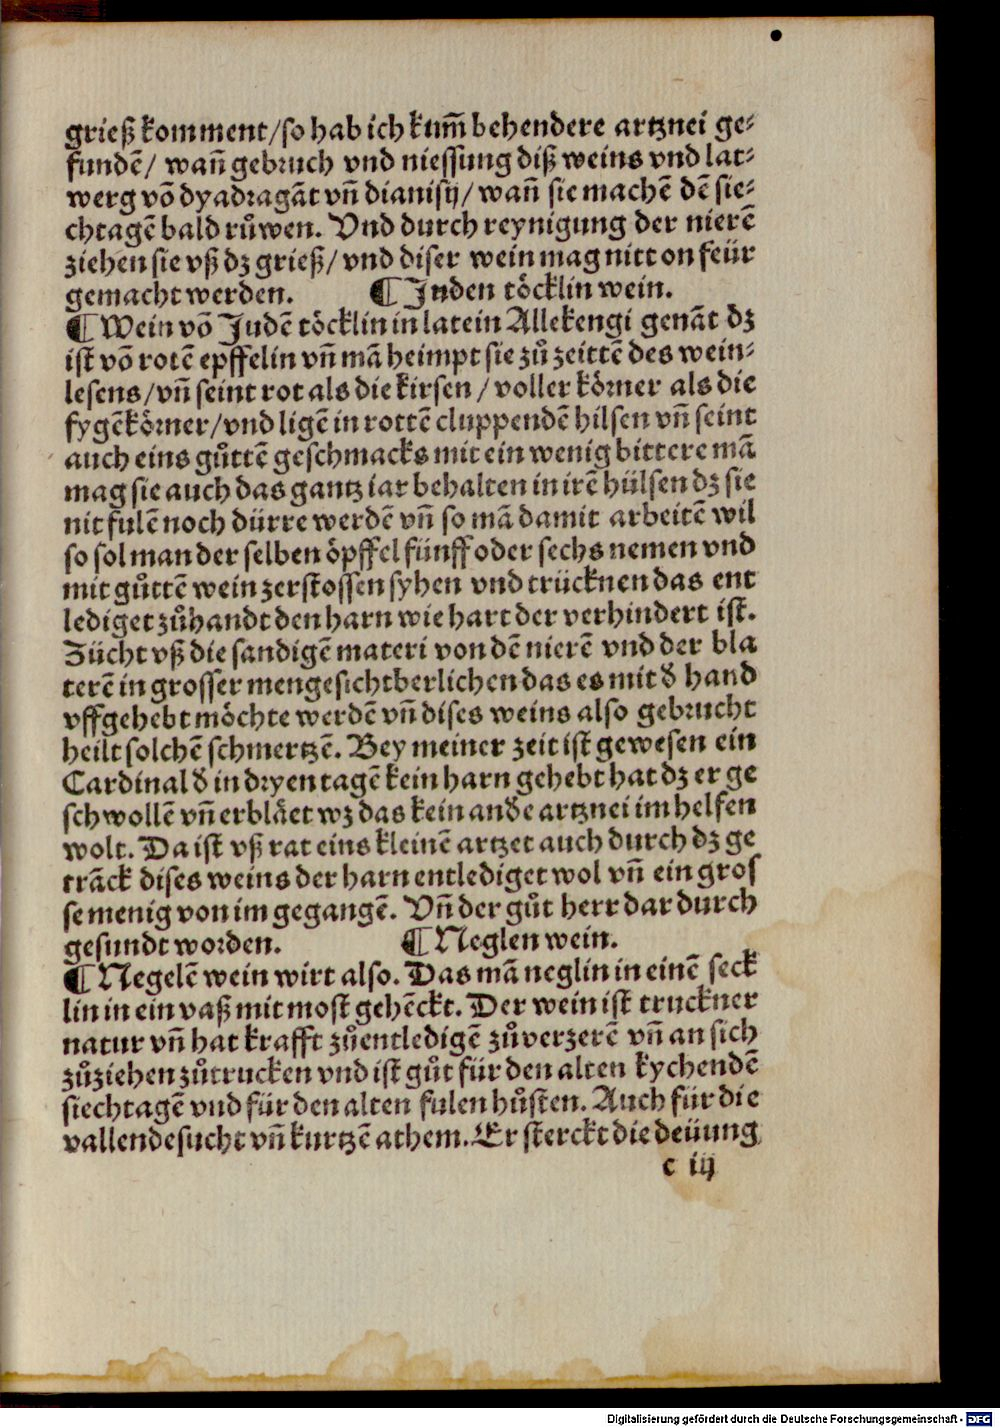 grieß komment/so hab ich kum̃ behendere artznei ge⸗
fundẽ/ wañ gebruch vnd niessung diß weins vnd lat⸗
werg võ dyadragãt vñ dianisij/ wañ sie machẽ dẽ sie⸗
chtagẽ bald růwen. Vnd durch reynigung der nierẽ
ziehen sie vß dz grieß/ vnd diser wein mag nitt on feür
gemacht werden. ¶ Juden töcklin wein.
¶ Wein võ Judẽ töcklin in latein Allekengi genãt dz
ist võ rotẽ epffelin vñ mã heimpt sie zů zeittẽ des wein⸗
lesens/vñ seint rot als die kirsen / voller körner als die
fygẽkörner/vnd ligẽ in rottẽ cluppendẽ hilsen vñ seint
auch eins gůttẽ geschmacks mit ein wenig bittere mã
mag sie auch das gantz iar behalten in irẽ hülsen dz sie
nit fulẽ noch dürre werdẽ vñ so mã damit arbeitẽ wil
so sol man der selben öpffel fünff oder sechs nemen vnd
mit gůttẽ wein zerstossen syhen vnd trücknen das ent
lediget zůhandt den harn wie hart der verhindert ist.
Zücht vß die sandigẽ materi von dẽ nierẽ vnd der bla
terẽ in grosser menge sichtberlichen das es mit đ hand
vffgehebt möchte werdẽ vñ dises weins also gebrucht
heilt solchẽ schmertzẽ. Bey meiner zeit ist gewesen ein
Cardinal đ in dryen tagẽ kein harn gehebt hat dz er ge
schwollẽ vñ erbläet wz das kein anđe artznei im helfen
wolt. Da ist vß rat eins kleinẽ artzet auch durch dz ge
trãck dises weins der harn entlediget wol vñ ein gros
se menig von im gegangẽ. Vñ der gůt herr dar durch
gesundt worden. ¶ Neglen wein.
¶ Negelẽ wein wirt also. Das mã neglin in einẽ seck
lin in ein vaß mit most gehẽckt. Der wein ist truckner
natur vñ hat krafft zůentledigẽ zůverzerẽ vñ an sich
zůziehen zůtrucken vnd ist gůt für den alten kychendẽ
siechtagẽ vnd für den alten fulen hůsten. Auch für die
vallende sucht vñ kurtzẽ athem. Er sterckt die deüung
c iij
Digitalisierung gefördert durch die Deutsche Forschungsgemeinschaft - DFG